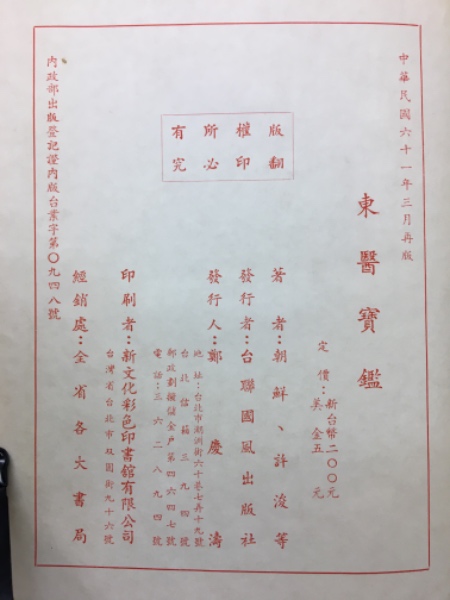 中華民國六十一年三月再版
東醫寶鑑
定價：新台幣二〇〇元
美金五元
版權所有
翻印必究
著者：朝鮮、許浚等
發行者：台聯國風出版社
發行人：鄭慶濤
地址：台北市潮洲街六十巷七弄十九號
台北信箱三九四號
郵政劃撥儲金戶第四六四七號
電話：三六二八九四號
印刷者：新文化彩色印書舘有限公司
台灣省台北市双園街九十六號
經銷處：全省各大書局
內政部出版登記證內版台業字第〇九四八號